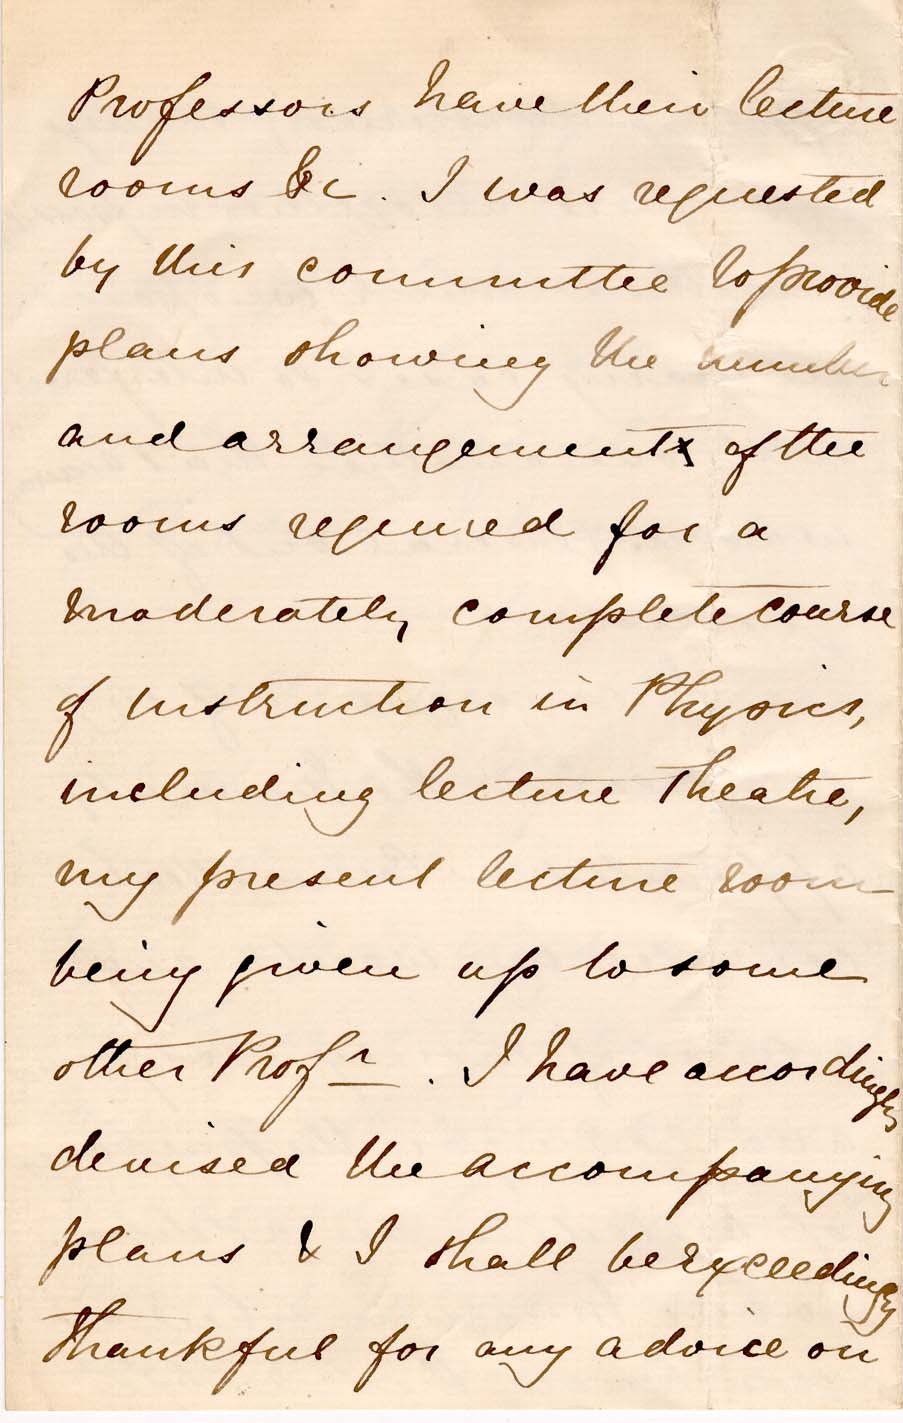 Professors have their lecture
rooms &c. I was requested
by this committee to provide
plans showing the number
and arrangements of the
rooms required for a
moderately complete course
of instruction in Physics,
including lecture theatre,
my present lecture room
being given up to some
other Profr. I have accordingly
devised the accompanying
plans & I shall be exceedingly
thankful for any advice on